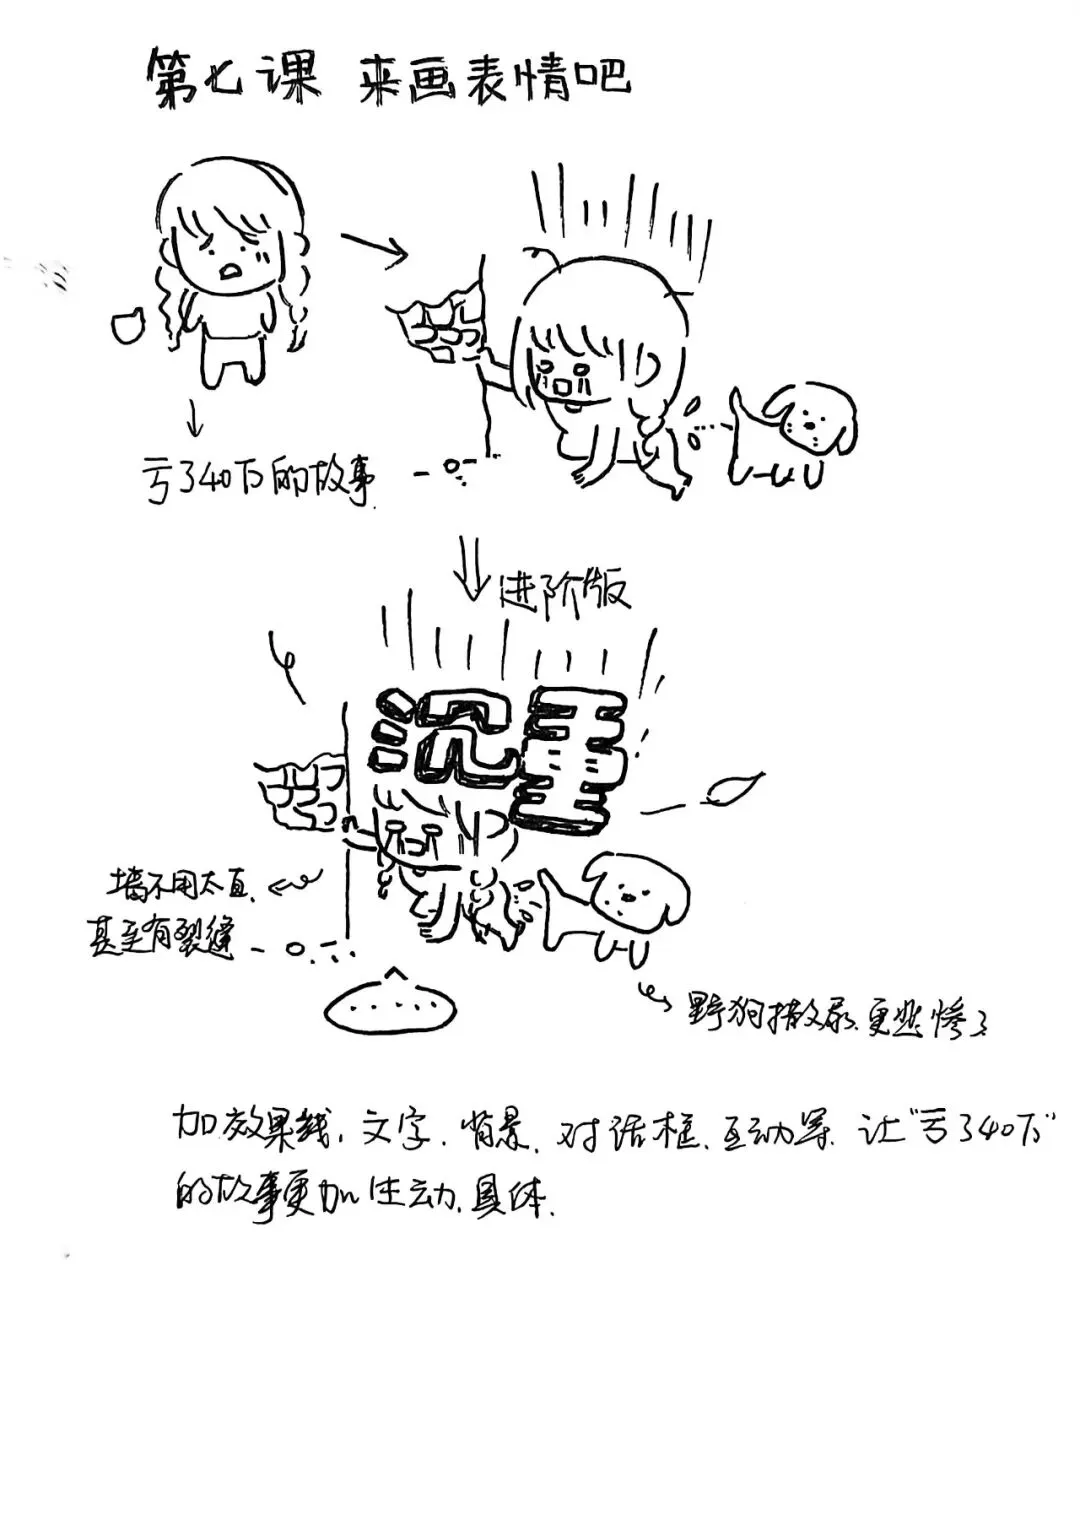 第七课 来画表情吧
亏了40万的故事
进阶版
沉重
墙不用太直.
甚至有裂缝
野狗撒尿.更悲惨了
加效果线.文字.背景.对话框.互动等.让"亏了40万"
的故事更加生动.具体.